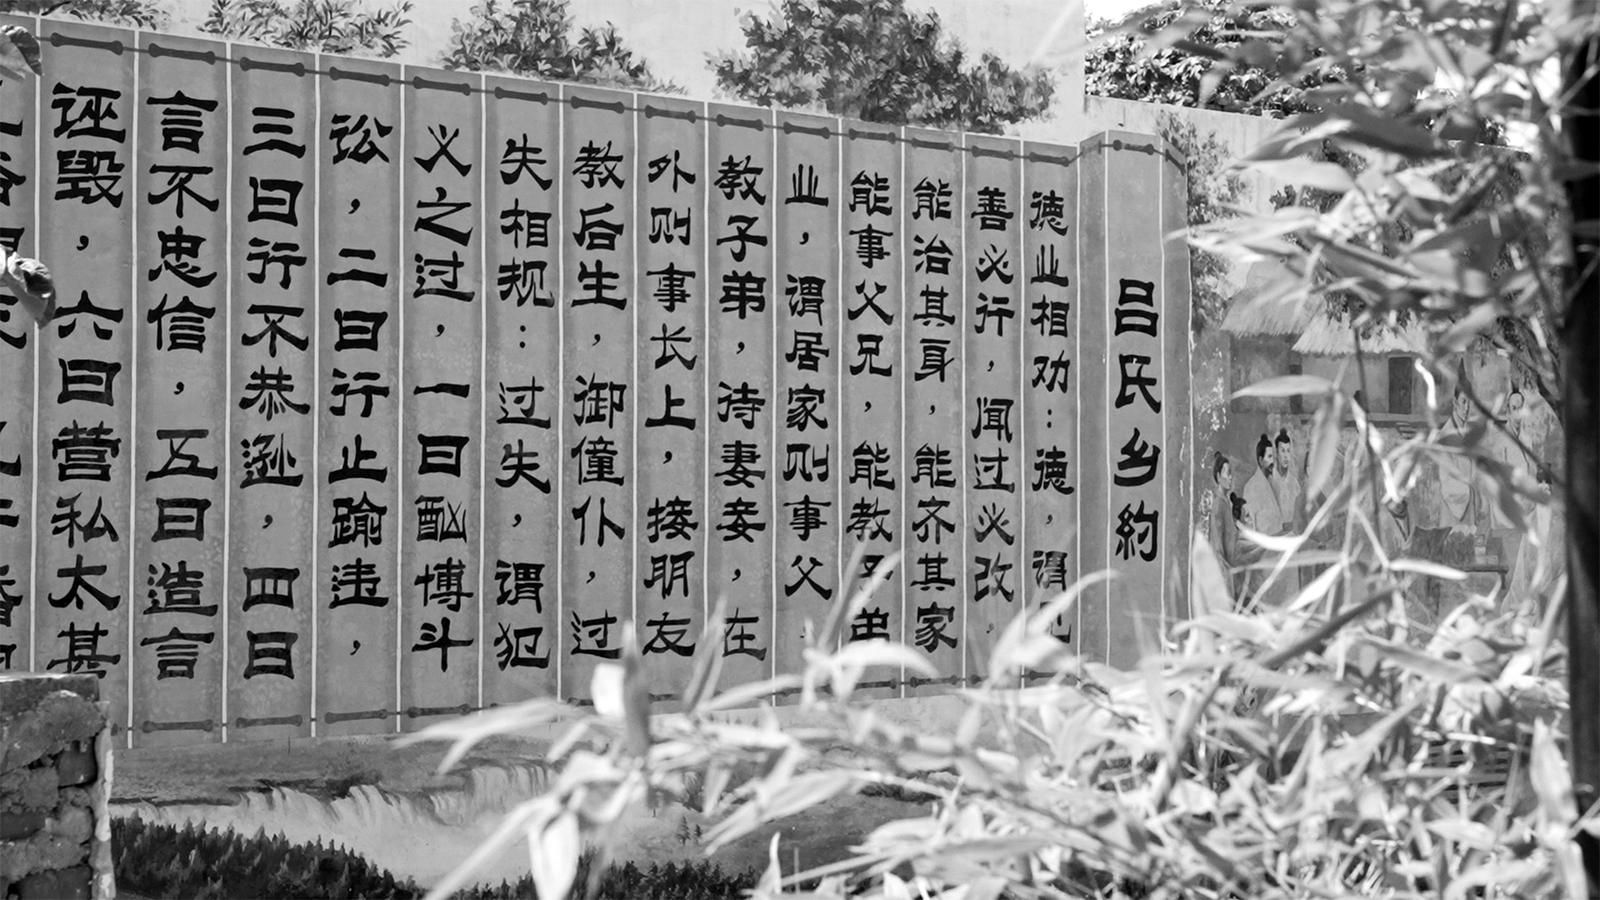 吕氏乡约
德业相劝：德，谓见
善必行，闻过必改
能治其身，能齐其家
能事父兄，能教子弟
业，谓居家则事父
教子弟，待妻妾，在
外则事长上，接朋友
教后生，御僮仆，过
失相规：过失，谓犯
义之过，一曰酗博斗
讼，二曰行止踰违，
三曰行不恭逊，四曰
言不忠信，五曰造言
诬毁，六曰营私太甚